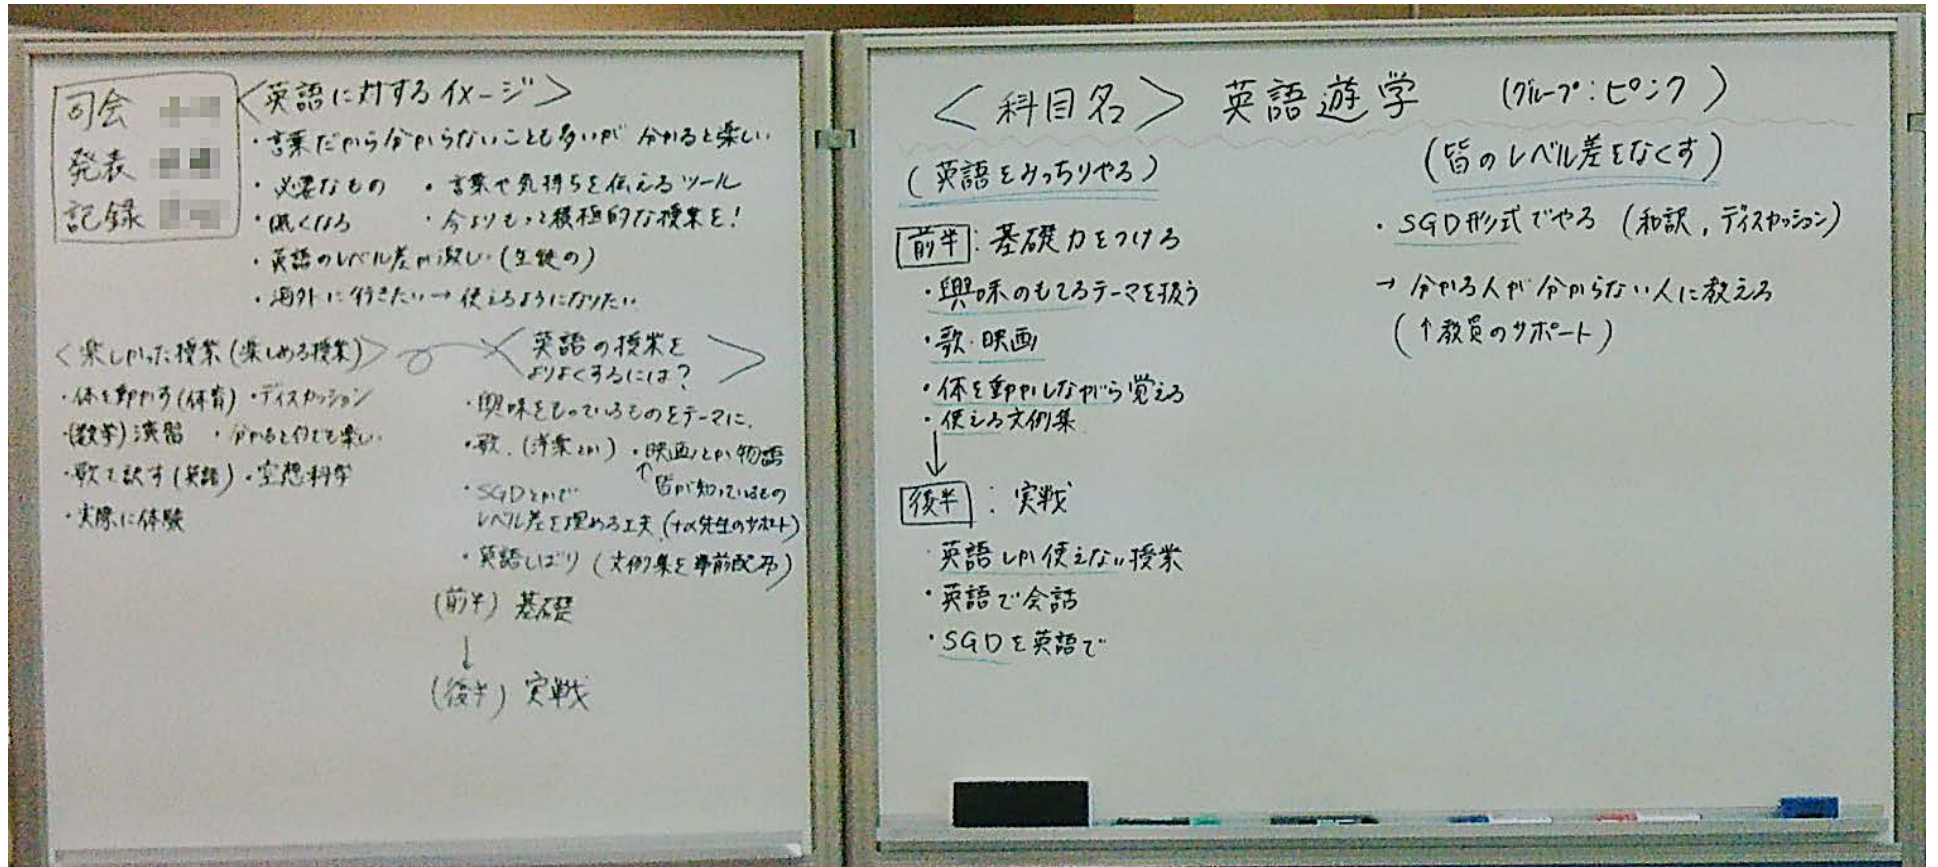 司会
発表
記録
<英語に対するイメージ>
・言葉だから分からないことも多いが 分かると楽しい
・必要なもの ・言葉や気持ちを伝えるツール
・眠くなる ・今よりもっと積極的な授業を!
・英語のレベル差が激しい(生徒の)
・海外に行きたい→使えるようになりたい
<楽しかった授業(楽しめる授業)>
・体を動かす(体育) ・ディスカッション
・(数学)演習 ・分かると何でも楽しい
・歌を訳す(英語) ・空想科学
・実際に体験
<英語の授業を
よりよくするには?>
・興味をもっているものをテーマに
・歌.(洋楽とか) ・映画とか物語
↑皆が知っているもの
・SGDとかで
レベル差を埋める工夫.(+α先生のサポート)
・英語しばり(文例集を事前配布)
(前半) 基礎
↓
(後半) 実戦
<科目名> 英語遊学 (グループ:ピンク)
(英語をみっちりやる)
前半:基礎力をつける
・興味のもてるテーマを扱う
・歌・映画
・体を動かしながら覚える
・使える文例集
↓
後半:実戦
・英語しか使えない授業
・英語で会話
・SGDを英語で
(皆のレベル差をなくす)
・SGD形式でやる(和訳,ディスカッション)
→分かる人が分からない人に教える
(↑教員のサポート)